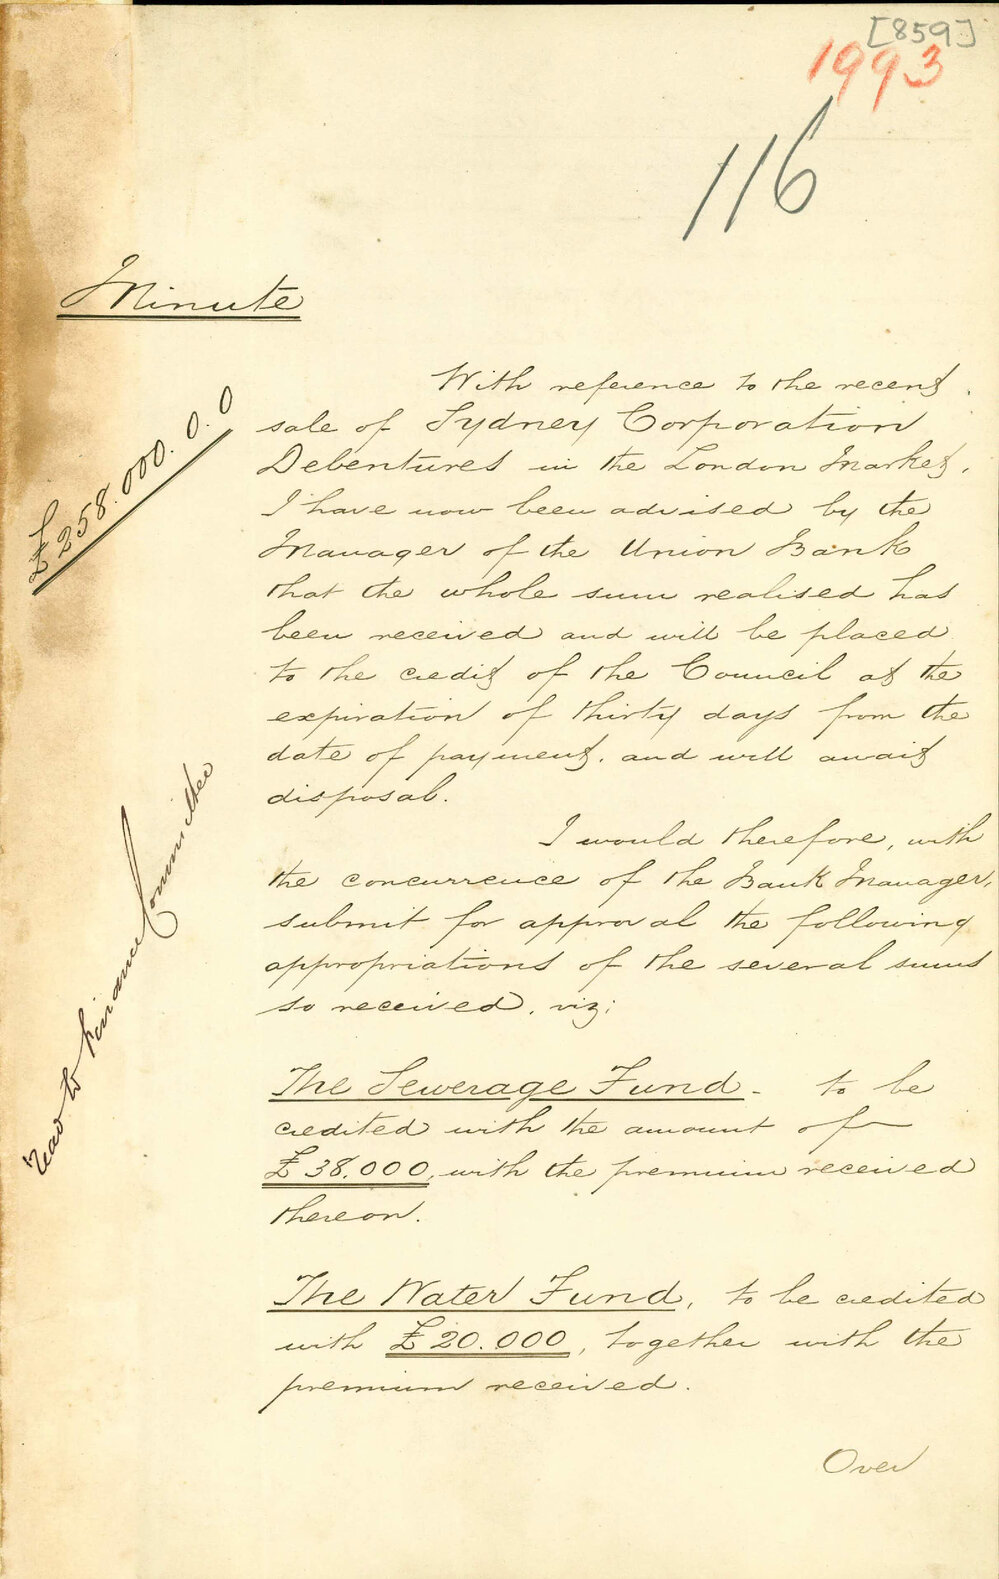 [859]
1993
116
Minute
With reference to the recent
sale of Sydney Corporation
Debentures in the London Market,
I have now been advised by the
Manager of the Union Bank
that the whole sum realised has
been received and will be placed
to the credit of the Council at the
expiration of thirty days from the
date of payment, and will await
disposal.
I would therefore, with
the concurrence of the Bank Manager,
submit for approval the following
appropriations of the several sums
so received, viz;
The Sewerage Fund - to be
credited with the amount of
£38.000, with the premium received
thereon.
The Water Fund, to be credited
with £20.000, together with the
premium received.
Over
£258.000.0.0
to Finance Committee